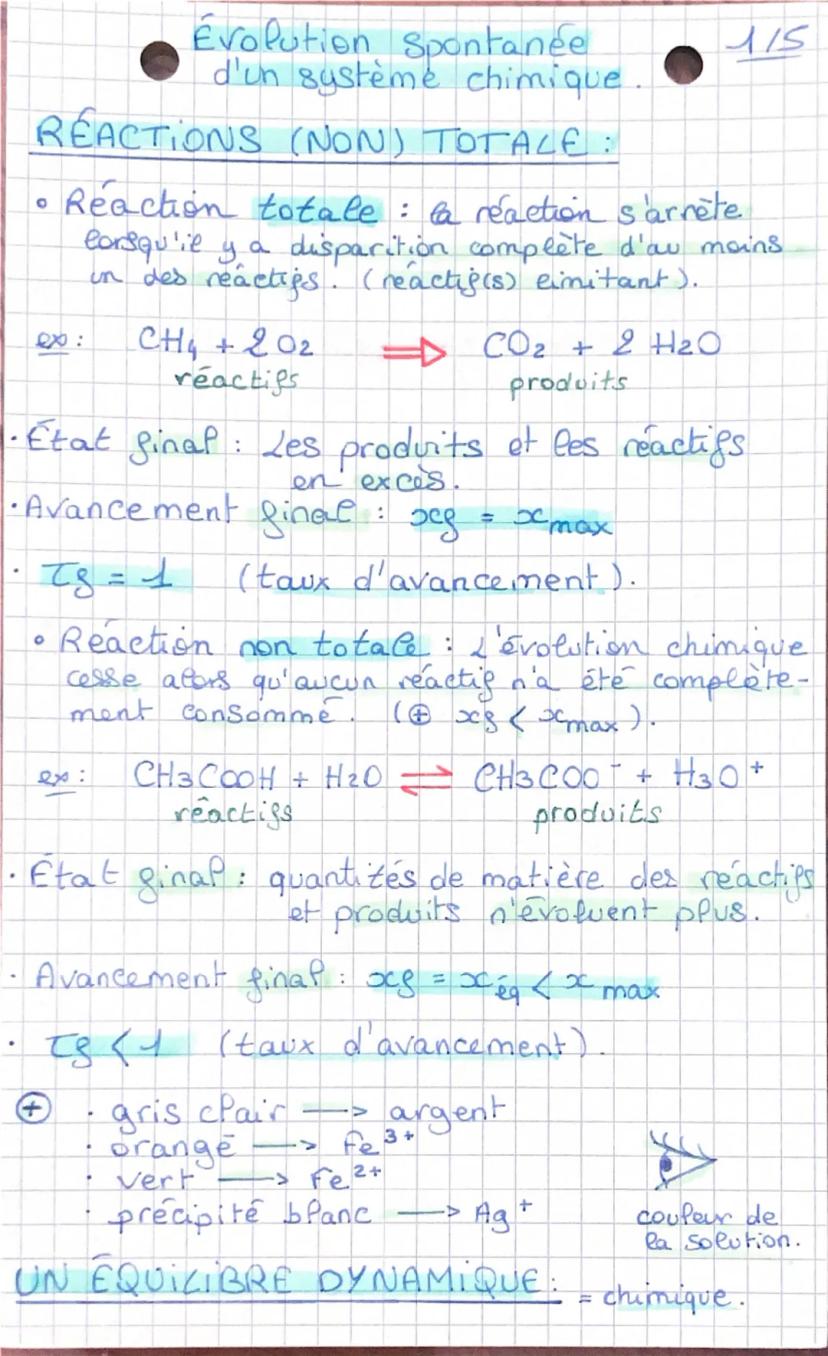 Évolution spontanée
d'un système chimique.
1/5
RÉACTIONS (NON) TOTALE :
• Réaction totale : la réaction s'arrête
lorsqu'il y a disparition complète d'au moins
un des réactifs. (réactif(s) limitant).
ex : CH4 + 2 O2 ⇒ CO2 + 2 H2O
réactifs produits
· État final : Les produits et les réactifs
en excès.
· Avancement final : xf = xmax
· τf = 1 (taux d'avancement).
• Réaction non totale : L'évolution chimique
cesse alors qu'aucun réactif n'a été complète-
ment consommé. (⊕ xf < xmax).
ex : CH3COOH + H2O ⇌ CH3COO⁻ + H3O⁺
réactifs produits
· État final : quantités de matière des réactifs
et produits n'évoluent plus.
· Avancement final : xf = xéq < xmax
· τf < 1 (taux d'avancement).
⊕ · gris clair → argent
· orangé → Fe³⁺
· vert → Fe²⁺
· précipité blanc → Ag⁺
couleur de
la solution.
UN ÉQUILIBRE DYNAMIQUE : = chimique.